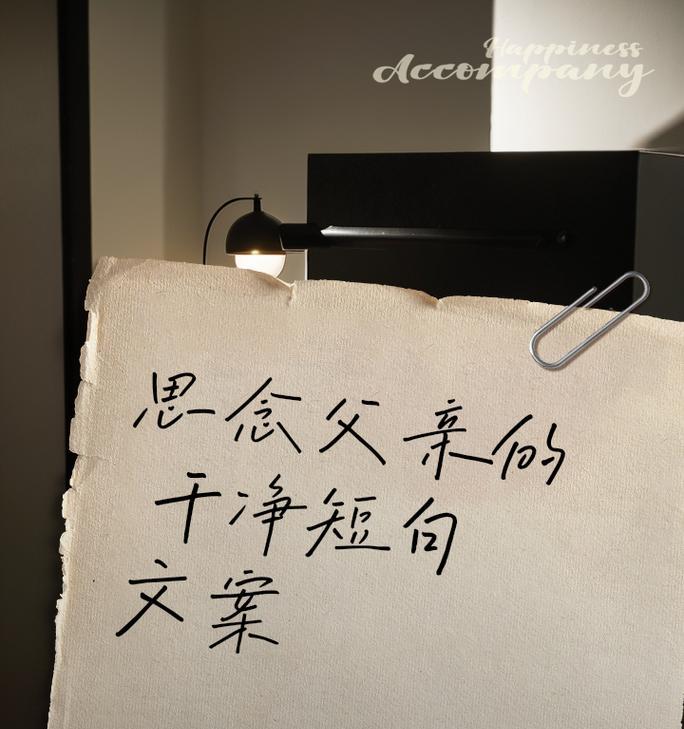 Happiness
Accompany
思念父亲的
干净短句
文案